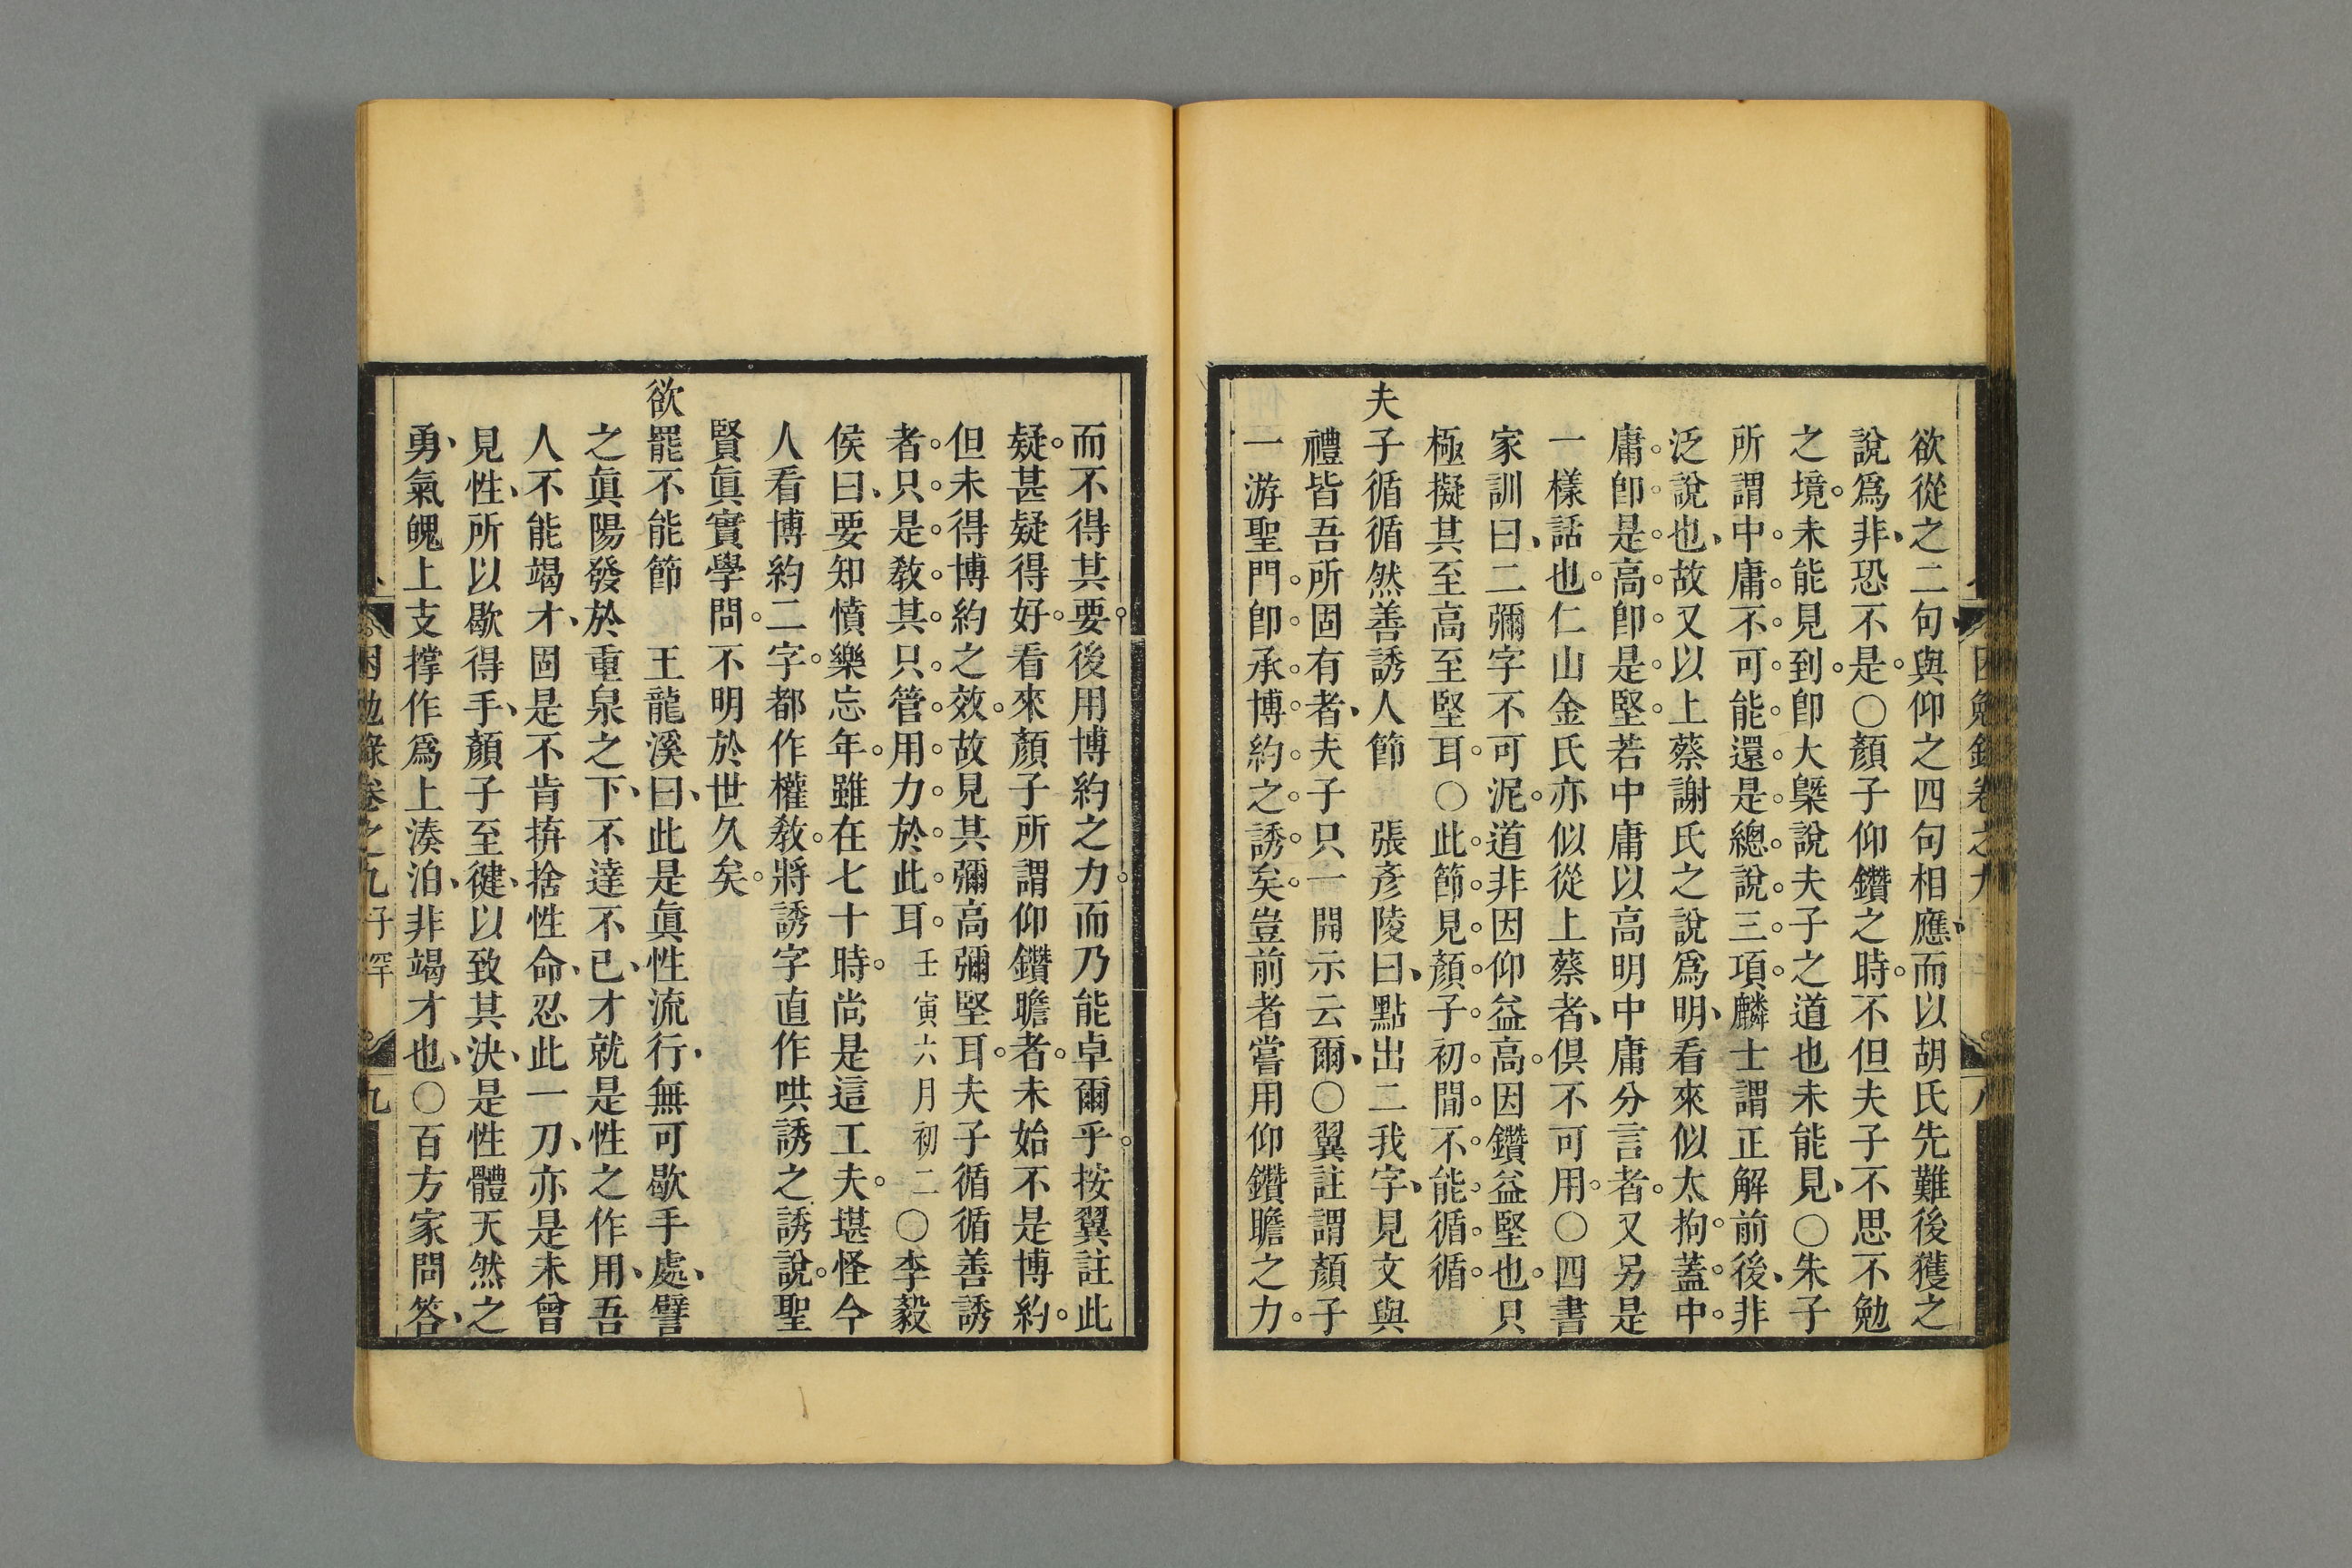 欲從之二句與仰之四句相應而以胡氏先難後獲之
說爲非恐不是○顏子仰鑽之時不但夫子不思不勉
之境未能見到卽大槩說夫子之道也未能見○朱子
所謂中庸不可能還是總說三項麟士謂正解前後非
泛說也故又以上蔡謝氏之說爲明看來似太拘蓋中
庸卽是高卽是堅若中庸以高明中庸分言者又另是
一樣話也仁山金氏亦似從上蔡者俱不可用○四書
家訓曰二彌字不可泥道非因仰益高因鑽益堅也只
極擬其至高至堅耳○此節見顏子初間不能循循
夫子循循然善誘人節 張彥陵曰點出二我字見文與
禮皆吾所固有者夫子只一開示云爾○翼註謂顏子
一游聖門卽承博約之誘矣豈前者嘗用仰鑽瞻之力
而不得其要後用博約之力而乃能卓爾乎按翼註此
疑甚疑得好看來顏子所謂仰鑽瞻者未始不是博約
但未得博約之效故見其彌高彌堅耳夫子循循善誘
者只是敎其只管用力於此耳壬寅六月初二○李毅
侯曰要知憤樂忘年雖在七十時尙是這工夫堪怪今
人看博約二字都作權敎將誘字直作哄誘之誘說聖
賢眞實學問不明於世久矣
欲罷不能節 王龍溪曰此是眞性流行無可歇手處譬
之眞陽發於重泉之下不達不已才就是性之作用吾
人不能竭才固是不肯拚捨性命忍此一刀亦是未曾
見性所以歇得手顏子至健以致其決是性體天然之
勇氣魄上支撐作爲上湊泊非竭才也○百方家問答
困勉錄卷之九 子罕 九